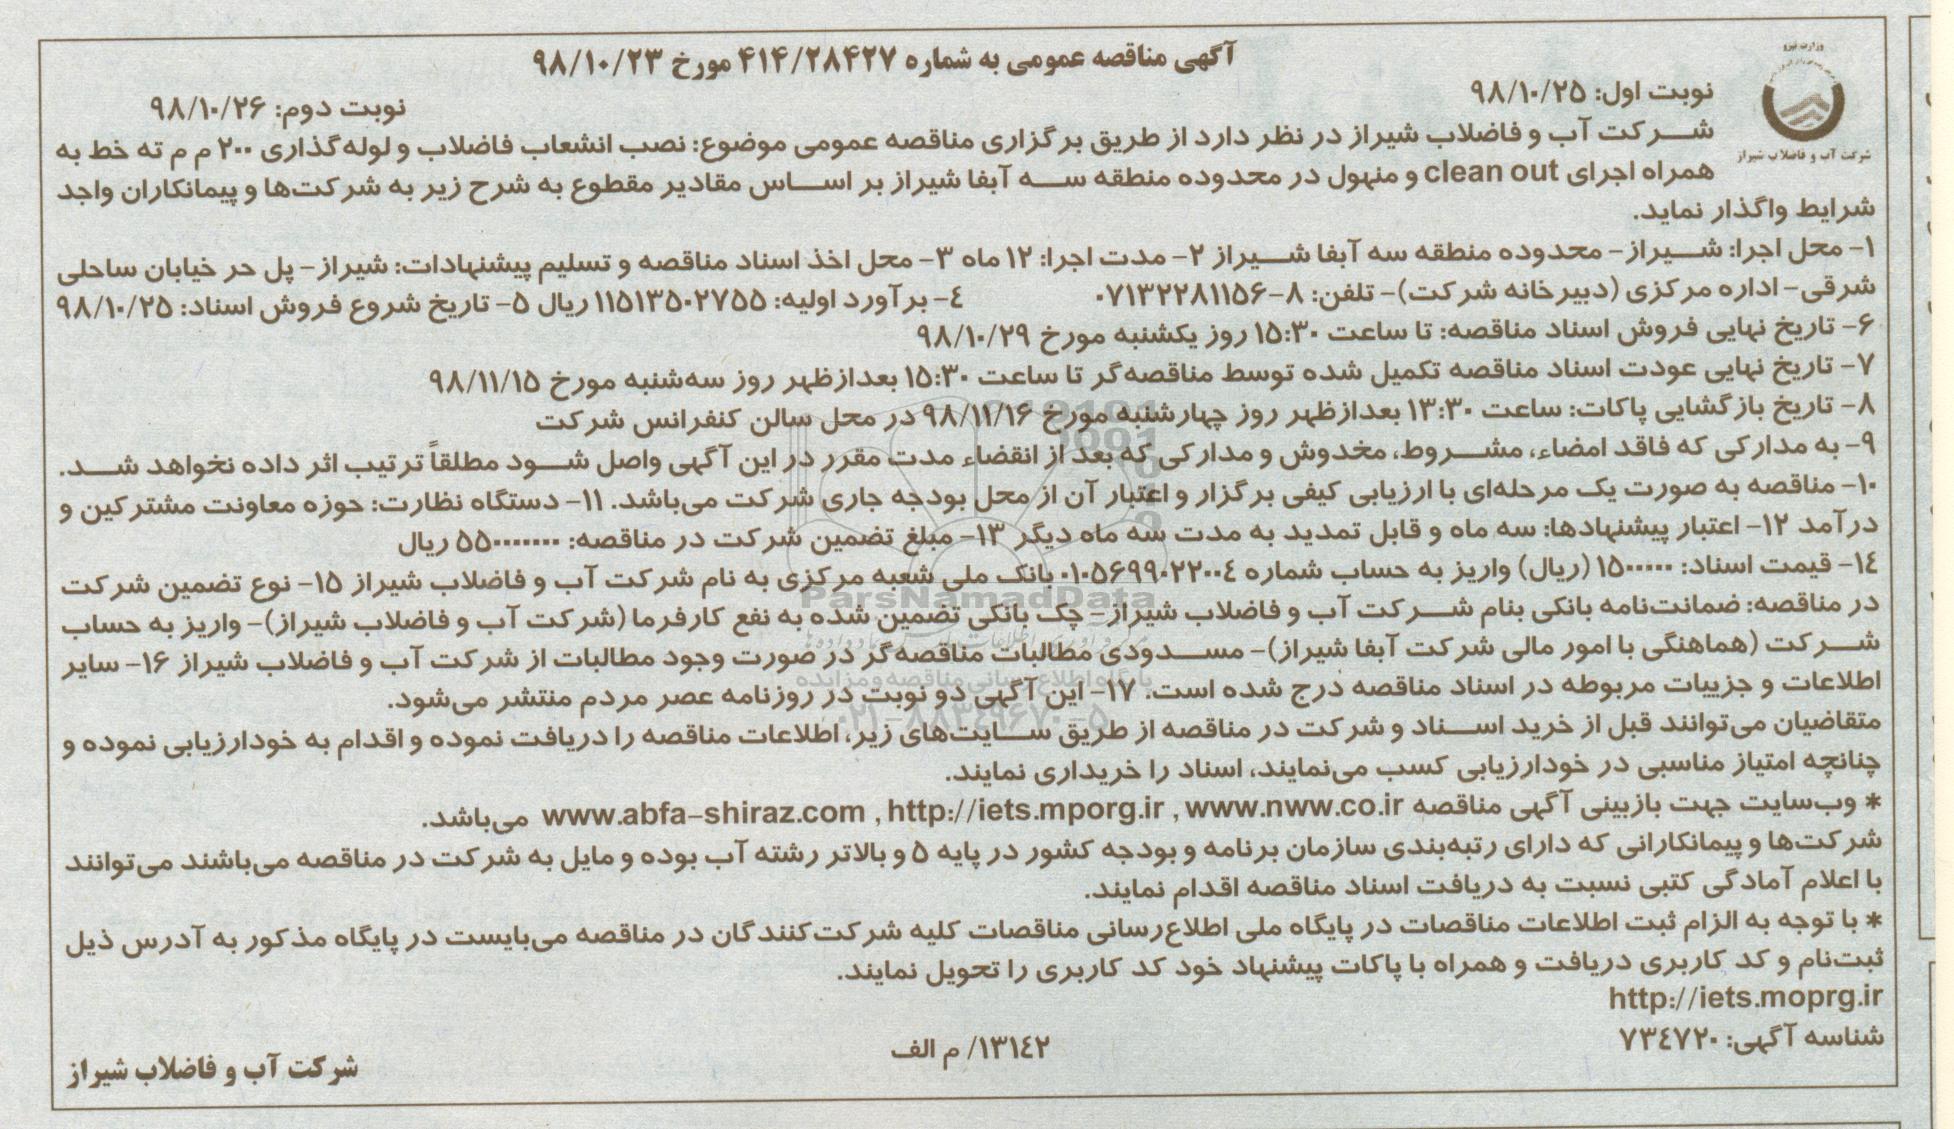 وزارت نیرو
شرکت آب و فاضلاب شیراز
آگهی مناقصه عمومی به شماره ۴۱۴/۲۸۴۲۷ مورخ ۹۸/۱۰/۲۳
نوبت اول: ۹۸/۱۰/۲۵
نوبت دوم: ۹۸/۱۰/۲۶
شرکت آب و فاضلاب شیراز در نظر دارد از طریق برگزاری مناقصه عمومی موضوع: نصب انشعاب فاضلاب و لوله‌گذاری ۲۰۰ م م ته خط به
همراه اجرای clean out و منهول در محدوده منطقه سه آبفا شیراز بر اساس مقادیر مقطوع به شرح زیر به شرکت‌ها و پیمانکاران واجد
شرایط واگذار نماید.
۱- محل اجرا: شیراز- محدوده منطقه سه آبفا شیراز ۲- مدت اجرا: ۱۲ ماه ۳- محل اخذ اسناد مناقصه و تسلیم پیشنهادات: شیراز- پل حر خیابان ساحلی
شرقی- اداره مرکزی (دبیرخانه شرکت)- تلفن: ۸-۰۷۱۳۲۲۸۱۱۵۶ ۴- برآورد اولیه: ۱۱۵۱۳۵۰۲۷۵۵ ریال ۵- تاریخ شروع فروش اسناد: ۹۸/۱۰/۲۵
۶- تاریخ نهایی فروش اسناد مناقصه: تا ساعت ۱۵:۳۰ روز یکشنبه مورخ ۹۸/۱۰/۲۹
۷- تاریخ نهایی عودت اسناد مناقصه تکمیل شده توسط مناقصه‌گر تا ساعت ۱۵:۳۰ بعدازظهر روز سه‌شنبه مورخ ۹۸/۱۱/۱۵
۸- تاریخ بازگشایی پاکات: ساعت ۱۳:۳۰ بعدازظهر روز چهارشنبه مورخ ۹۸/۱۱/۱۶ در محل سالن کنفرانس شرکت
۹- به مدارکی که فاقد امضاء، مشروط، مخدوش و مدارکی که بعد از انقضاء مدت مقرر در این آگهی واصل شود مطلقاً ترتیب اثر داده نخواهد شد.
۱۰- مناقصه به صورت یک مرحله‌ای با ارزیابی کیفی برگزار و اعتبار آن از محل بودجه جاری شرکت می‌باشد. ۱۱- دستگاه نظارت: حوزه معاونت مشترکین و
درآمد ۱۲- اعتبار پیشنهادها: سه ماه و قابل تمدید به مدت سه ماه دیگر ۱۳- مبلغ تضمین شرکت در مناقصه: ۵۵۰۰۰۰۰۰۰ ریال
۱۴- قیمت اسناد: ۱۵۰۰۰۰۰ (ریال) واریز به حساب شماره ۰۱۰۵۶۹۹۰۲۲۰۰۴ بانک ملی شعبه مرکزی به نام شرکت آب و فاضلاب شیراز ۱۵- نوع تضمین شرکت
در مناقصه: ضمانت‌نامه بانکی بنام شرکت آب و فاضلاب شیراز- چک بانکی تضمین شده به نفع کارفرما (شرکت آب و فاضلاب شیراز)- واریز به حساب
شرکت (هماهنگی با امور مالی شرکت آبفا شیراز)- مسدودی مطالبات مناقصه‌گر در صورت وجود مطالبات از شرکت آب و فاضلاب شیراز ۱۶- سایر
اطلاعات و جزییات مربوطه در اسناد مناقصه درج شده است. ۱۷- این آگهی دو نوبت در روزنامه عصر مردم منتشر می‌شود.
متقاضیان می‌توانند قبل از خرید اسناد و شرکت در مناقصه از طریق سایت‌های زیر، اطلاعات مناقصه را دریافت نموده و اقدام به خودارزیابی نموده و
چنانچه امتیاز مناسبی در خودارزیابی کسب می‌نمایند، اسناد را خریداری نمایند.
* وب‌سایت جهت بازبینی آگهی مناقصه www.abfa-shiraz.com , http://iets.mporg.ir , www.nww.co.ir می‌باشد.
شرکت‌ها و پیمانکارانی که دارای رتبه‌بندی سازمان برنامه و بودجه کشور در پایه ۵ و بالاتر رشته آب بوده و مایل به شرکت در مناقصه می‌باشند می‌توانند
با اعلام آمادگی کتبی نسبت به دریافت اسناد مناقصه اقدام نمایند.
* با توجه به الزام ثبت اطلاعات مناقصات در پایگاه ملی اطلاع‌رسانی مناقصات کلیه شرکت‌کنندگان در مناقصه می‌بایست در پایگاه مذکور به آدرس ذیل
ثبت‌نام و کد کاربری دریافت و همراه با پاکات پیشنهاد خود کد کاربری را تحویل نمایند.
http://iets.moprg.ir
شناسه آگهی: ۷۳۴۷۲۰
۱۳۱۴۲/ م الف
شرکت آب و فاضلاب شیراز
ParsNamadData
پایگاه اطلاع رسانی مناقصه و مزایده
۰۲۱-۸۸۳۴۹۶۷۰-۵